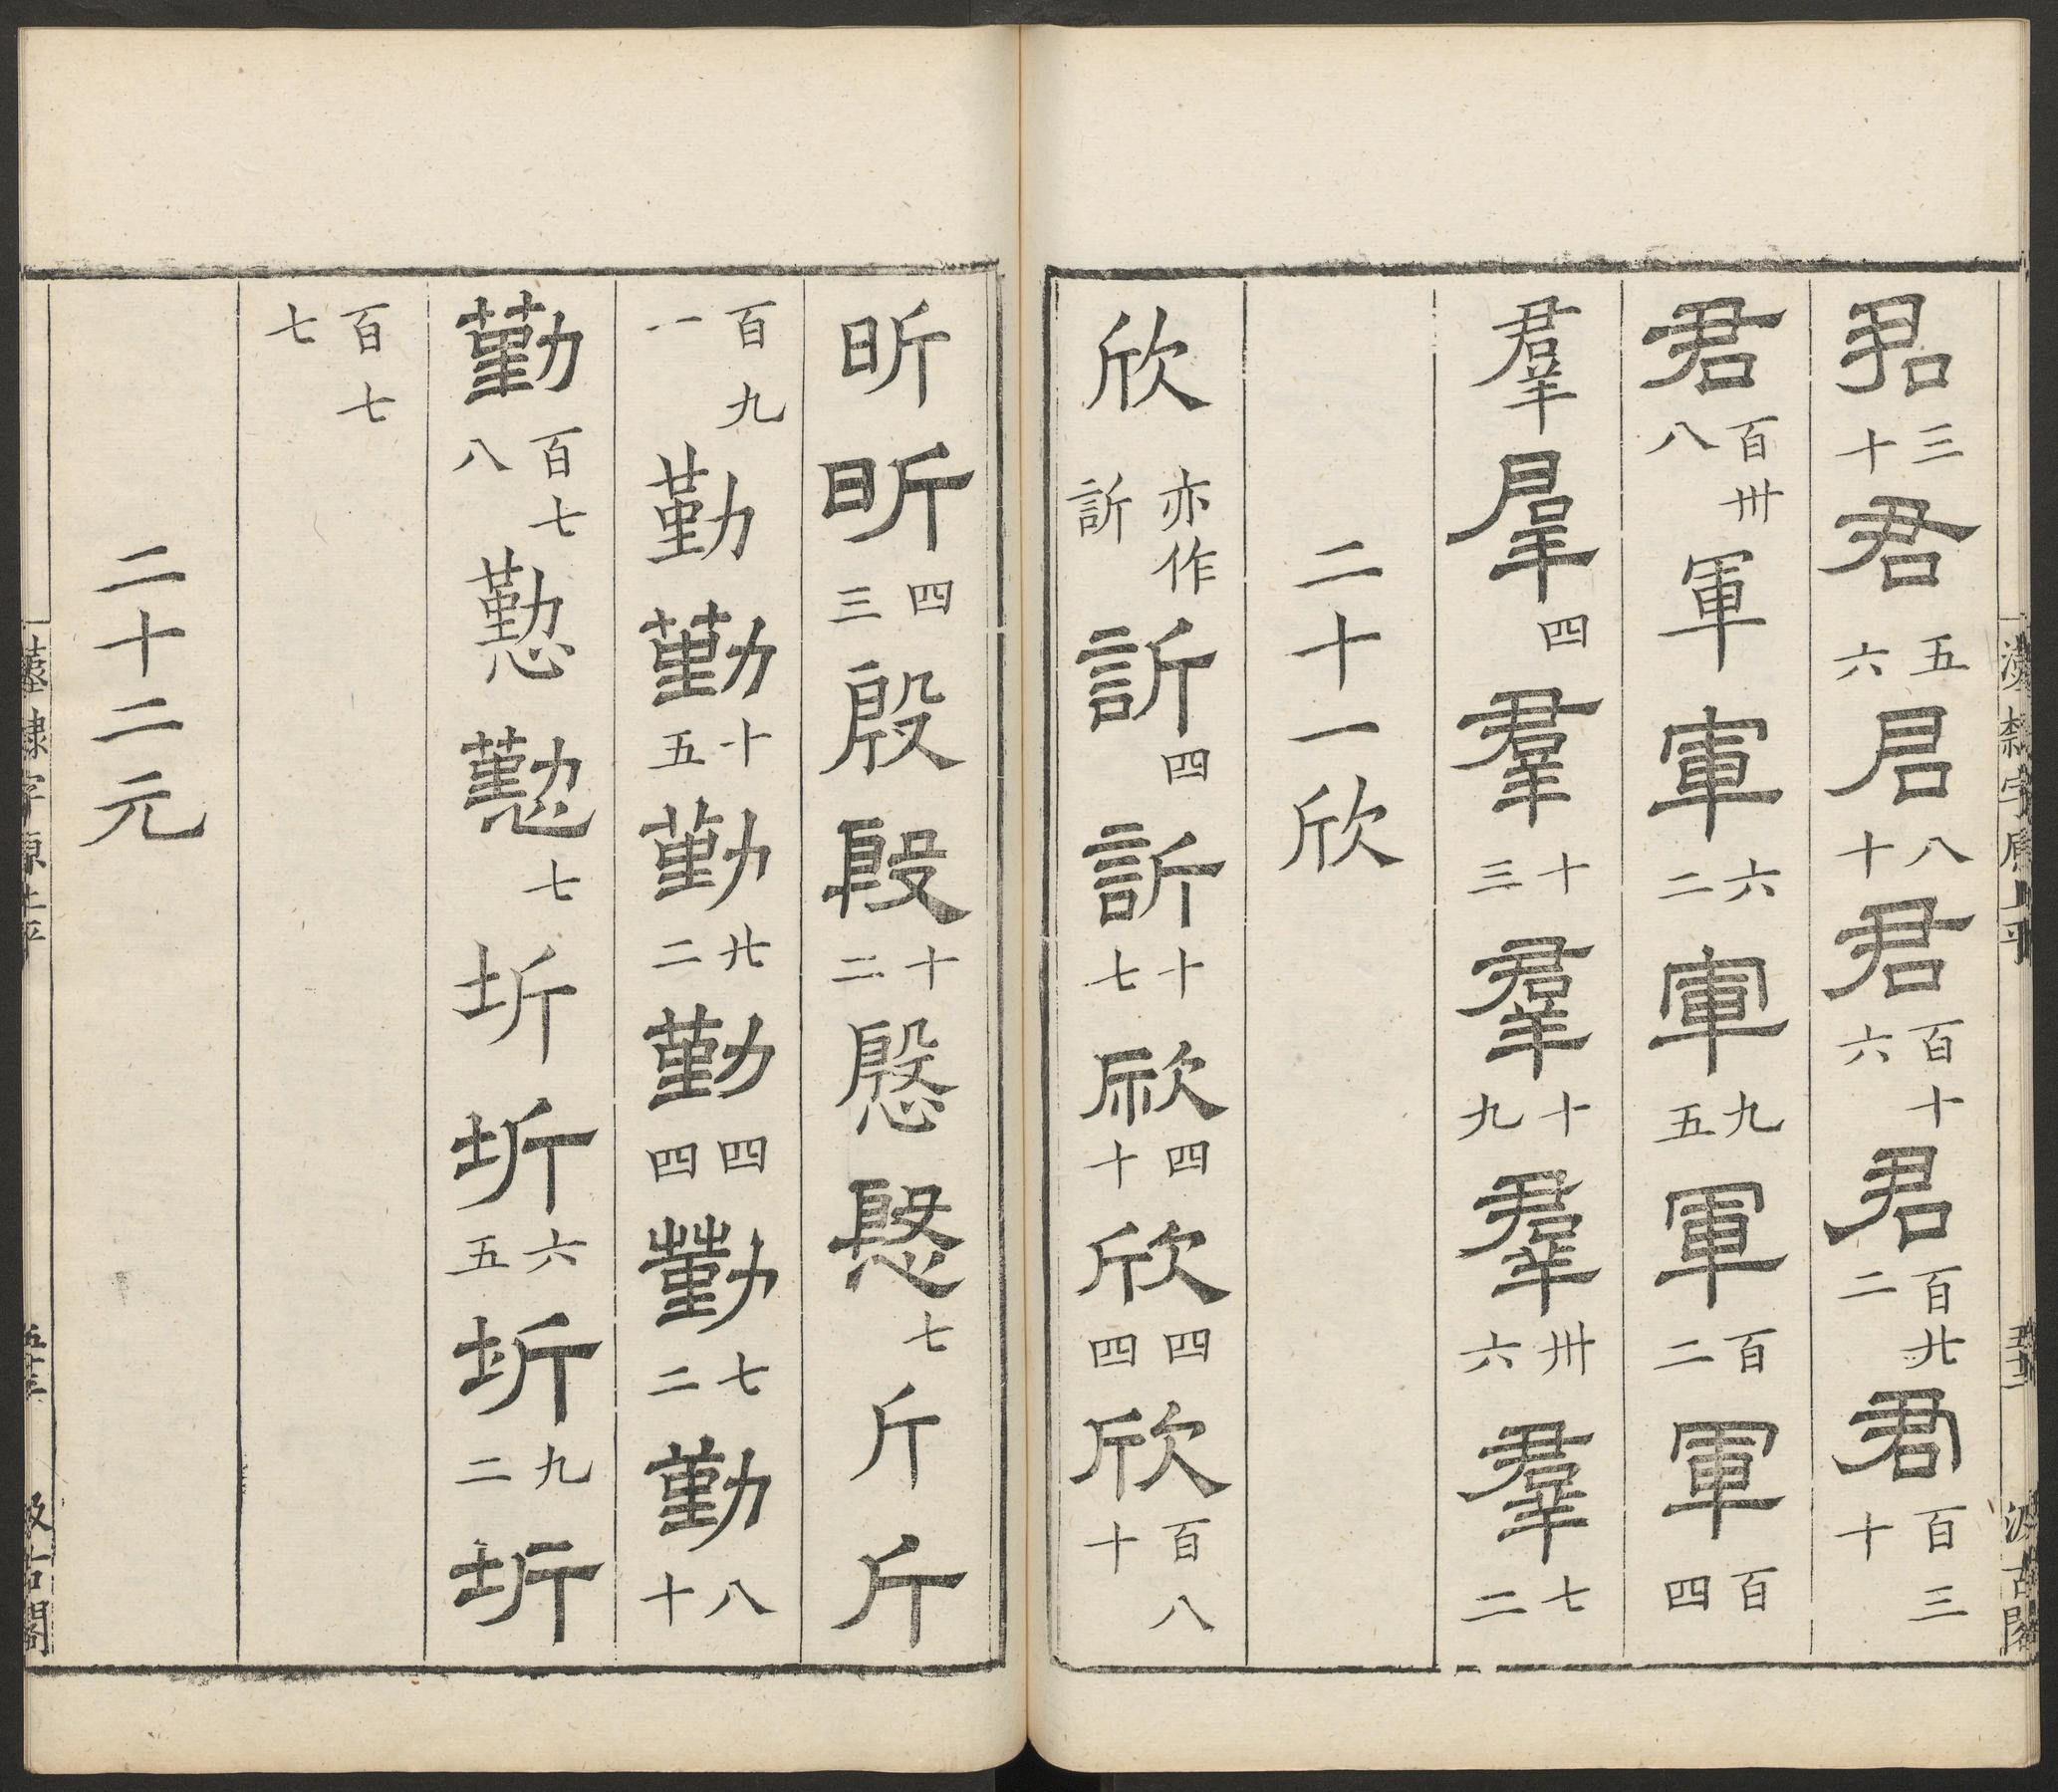 君三十君五六君八十君百十六君百廿二君百三十
君百卅八軍軍六二軍九五軍百二軍百四
羣羣四羣十三羣十九羣卅六羣七二
二十一欣
欣亦作訢訢四訢十七欣四十欣四四欣百八十
昕昕四三殷殷十二慇慇七斤斤
百九一勤勤十五勤廿二勤四四勤七二勤八十
勤百七八懃懃七圻圻六五圻九二圻
百七七
二十二元
漢隸字源上平
汲古閣
漢隸字源上平
汲古閣